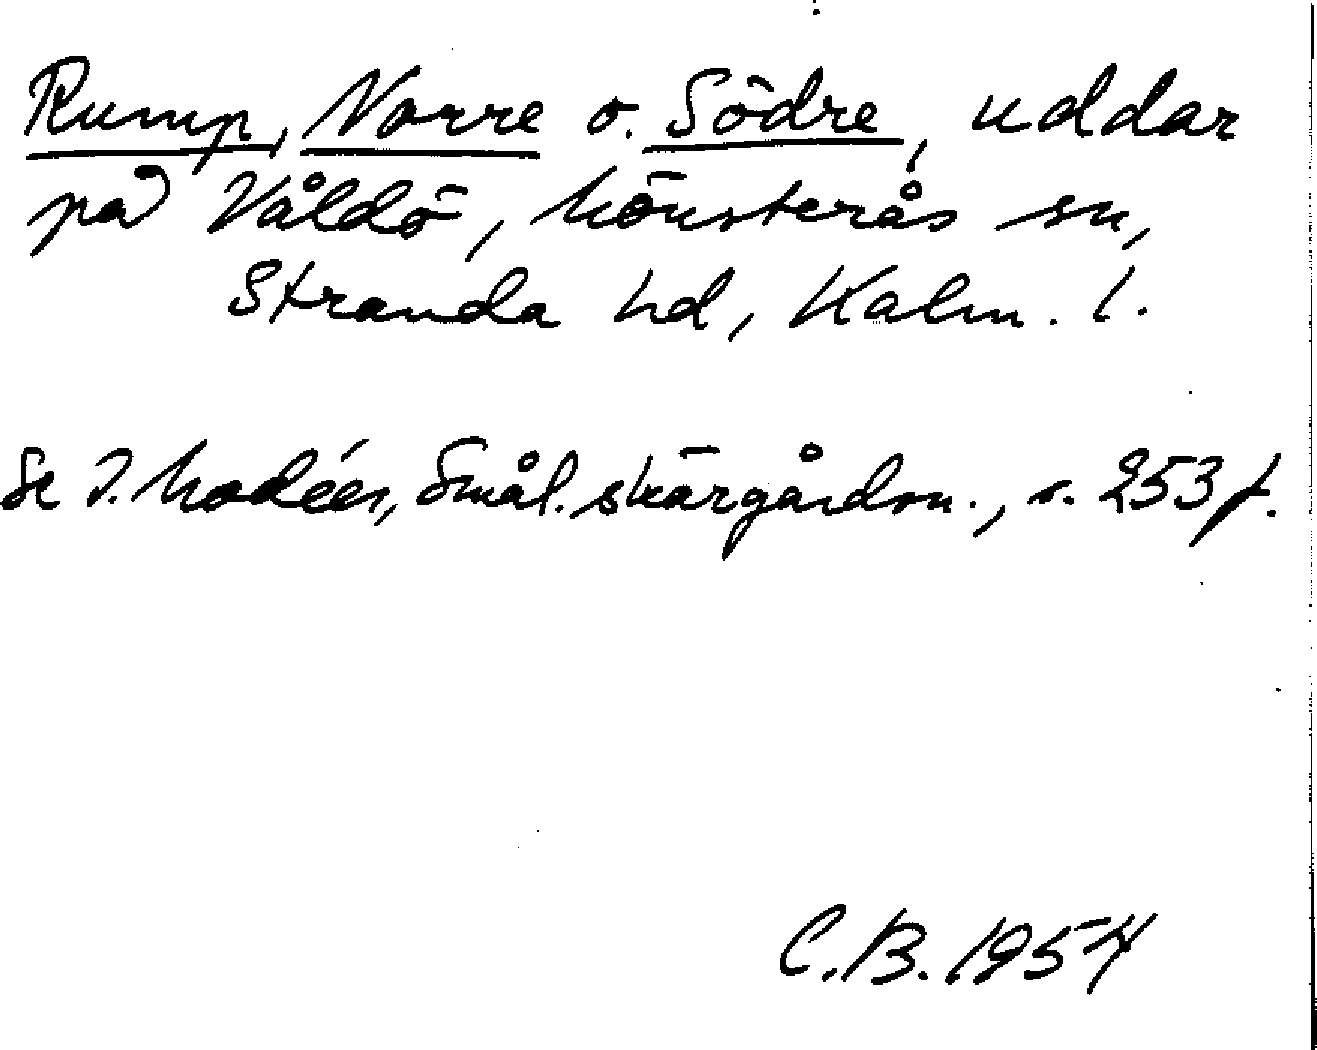 Rump, Norre o. Södre, uddar
på Våldö, Mönsterås sn,
Stranda hd, Kalm. l.
Se I. Modéer, Smål. skärgårdsn., s. 253 f.
C.B. 1954